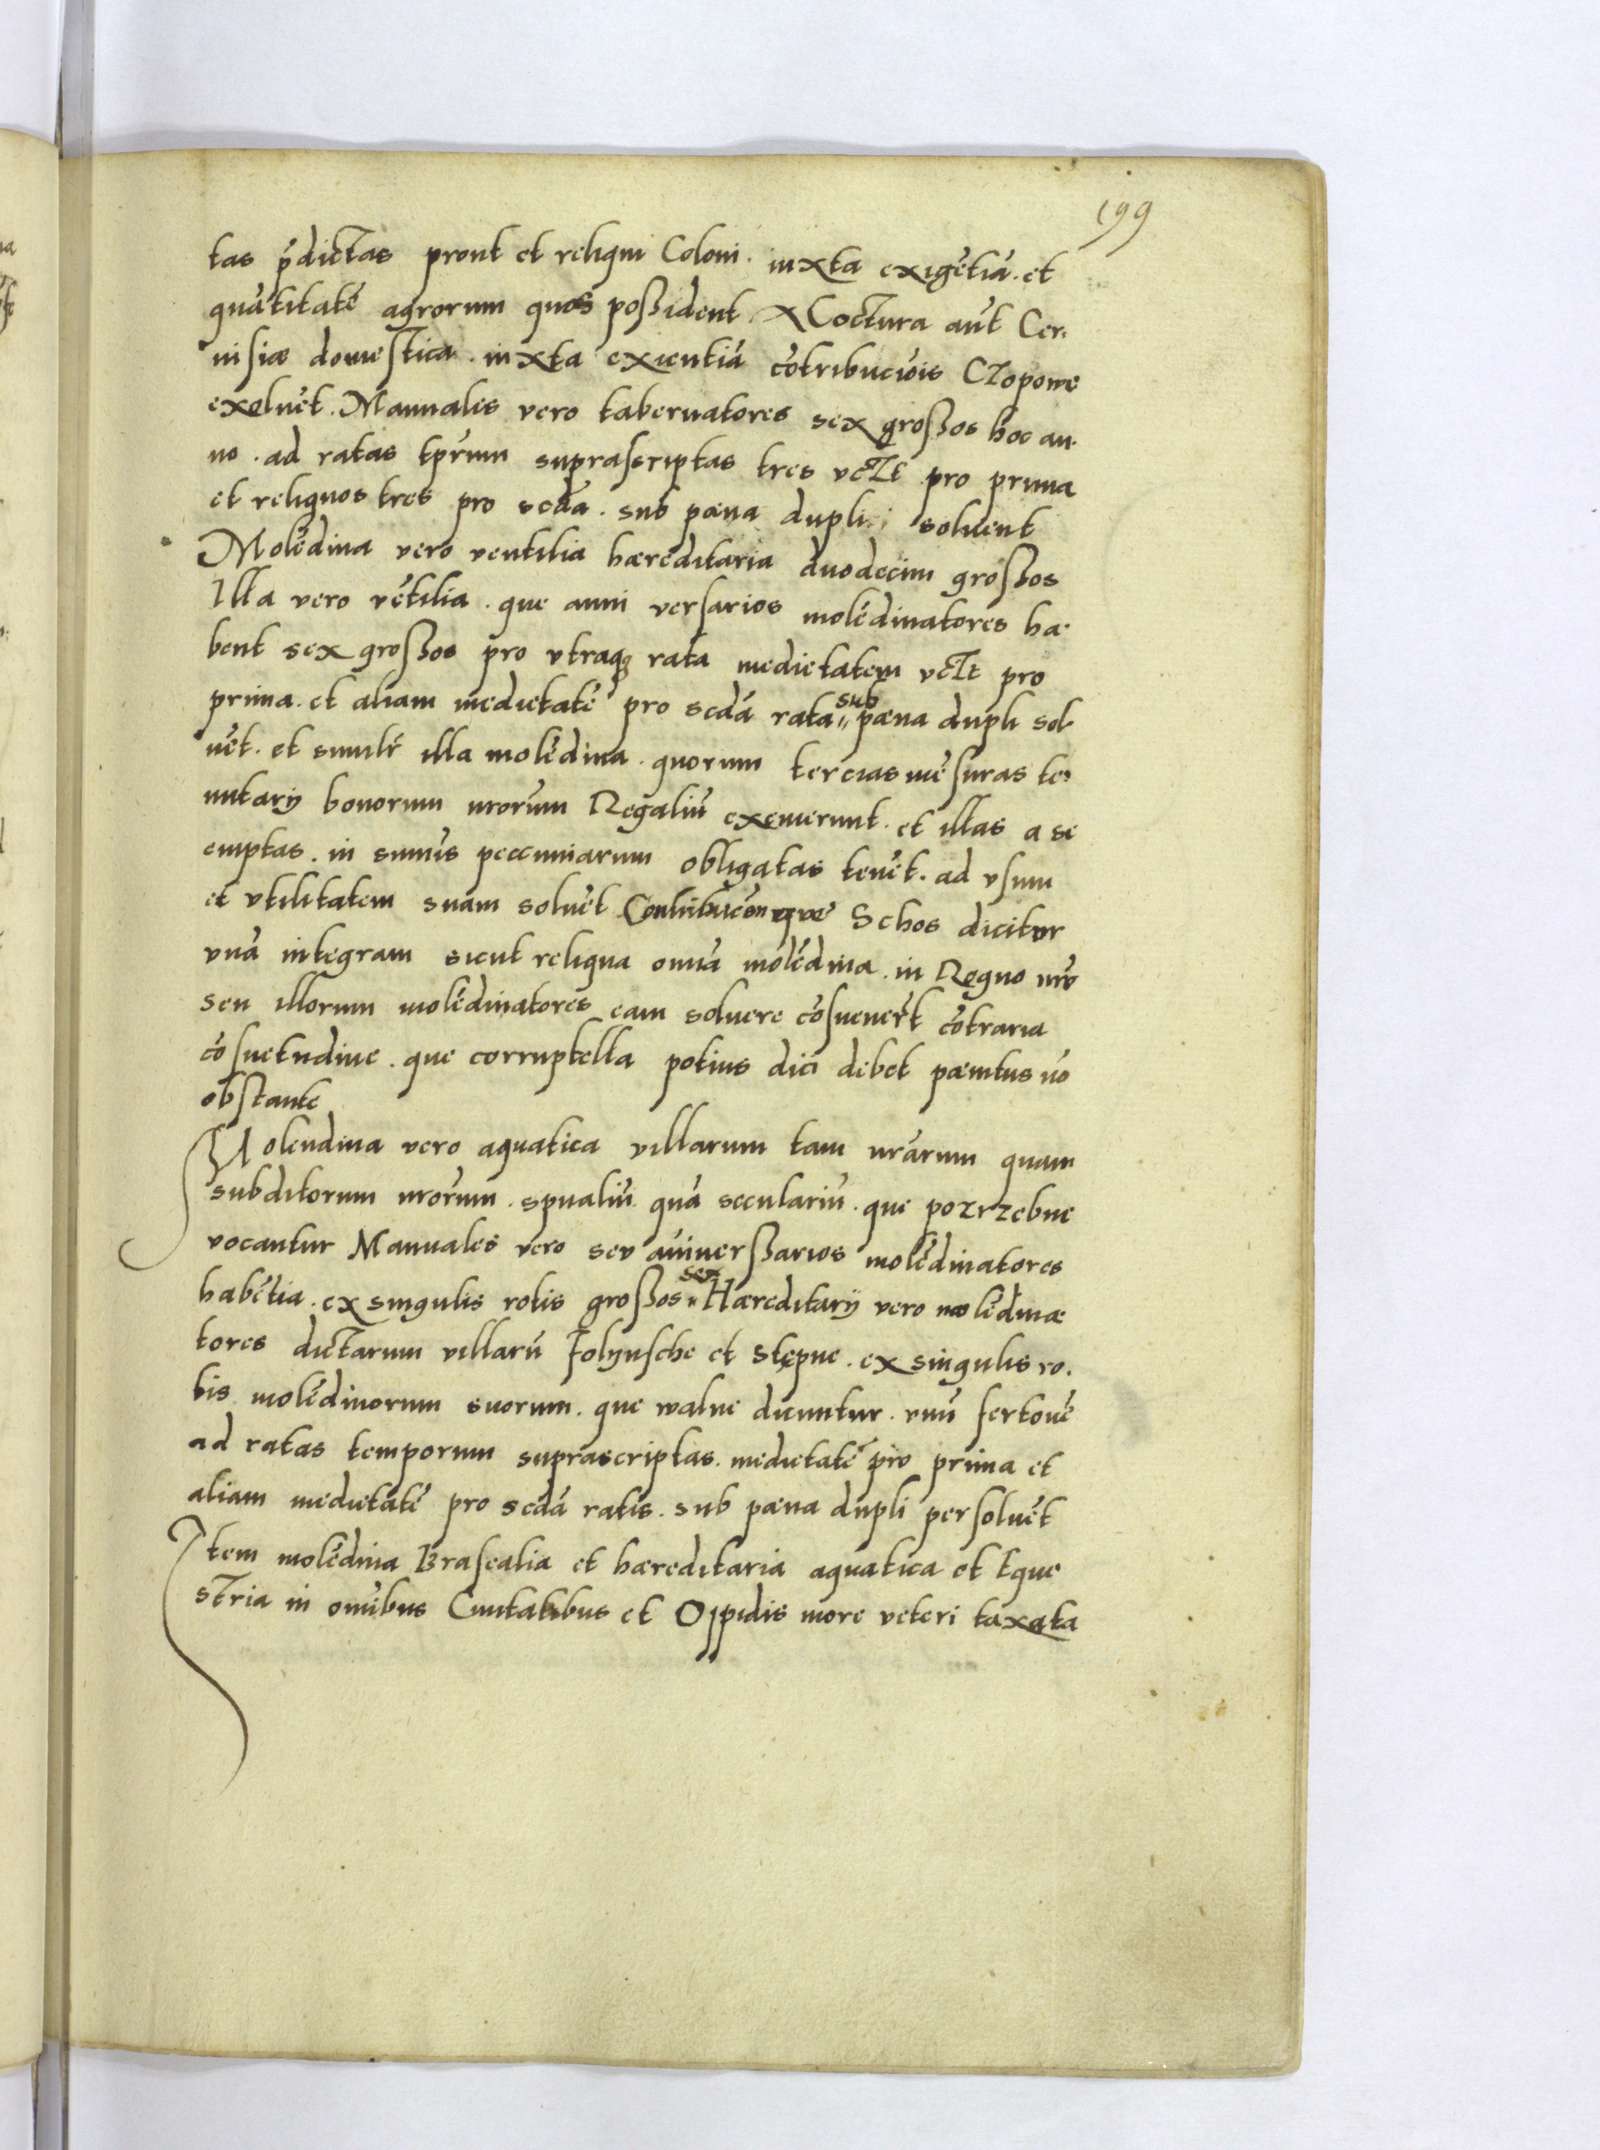 199
tas p̄dictas prout et reliqui Coloni. iuxta exigētiā. et
quātitatē agrorum quos poßident X Coctura aūt Cer.
uisiæ domestica. iuxta exientiā cōtribuciōis Czopowe
exoluēt. Manuales vero tabernatores sex großos hoc an.
no. ad ratas tp̄rum suprascriptas tres vczt pro prima
et reliquos tres pro scdā. sub pœna dupli soluent
Molēdina vero ventilia hæreditaria duodecim großos
Illa vero vētilia. que anni versarios molēdinatores ha.
bent sex großos pro vtraq; rata medietatem vczt pro
prima. et aliam medietatē pro scdā rata sub pœna dupli sol
uēt. et similr̄ illa molēdina. quorum tercias mēsuras te.
nutarij bonorum nrōrum Regaliū exemerunt. et illas a se
emptas. in sumīs peccuniarum obligatas tenēt. ad vsum
et vtilitatem suam soluēt Contribucōn que Schos dicitur
vnā integram sicut reliqua omīa molēdina. in Regno nrō
seu illorum molēdinatores eam soluere cōsueuert̄ cōtraria
cōsuetudine. que corruptella potius dici debet pænitus nō
obstante
Molendina vero aquatica villarum tam nrārum quam
subditorum nrōrum. spualiū quā seculariū. que pozrzebne
vocantur Manuales vero seu anniuerßarios molēdinatores
habētia. ex singulis rotis großos sex Hæreditarij vero molēdina
tores dictarum villarū Folynsche et Stępne. ex singulis ro.
tis molēdinorum suorum. que walne dicuntur. vnū fertonē
ad ratas temporum suprascriptas. medietatē pro prima et
aliam medietatē pro scdā ratis. sub pœna dupli persoluēt
Item molēdina Brasealia et hæreditaria aquatica et Eque
stria in omībus Ciuitatibus et Oppidis more veteri taxata